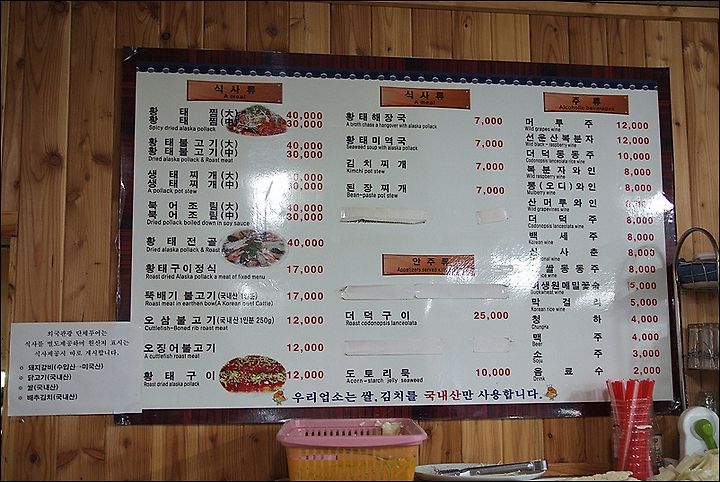 식사류
A meal
황태찜(大) 40,000
황태찜(中) 30,000
Spicy dried alaska pollack
황태불고기(大) 40,000
황태불고기(中) 30,000
Dried alaska pollack & Roast meat
생태찌개(大)
생태찌개(中) 30,000
A pollack pot stew
북어조림(大) 40,000
북어조림(中) 30,000
Dried pollack boiled down in soy sauce
황태전골 40,000
Dried alaska pollack & Roast
황태구이정식 17,000
Roast dried Alaska pollack a meat of fixed menu
뚝배기 불고기(국내산 1인분) 17,000
Roast meat in earthen bow(A Korean beef Cattle)
오삼불고기(국내산 1인분 250g) 12,000
Cuttlefish-Boned rib roast meat
오징어불고기 12,000
A cuttlefish roast meat
황태구이 12,000
Roast dried alaska pollack
식사류
A meal
황태해장국 7,000
A broth chase a hangover with alaska pollack
황태미역국 7,000
Seaweed soup with alaska pollack
김치찌개 7,000
Kimchi pot stew
된장찌개 7,000
Bean-paste pot stew
안주류
Appetizers served
더덕구이 25,000
Roast codonopsis lanceolata
도토리묵 10,000
Acorn-starch jelly seaweed
주류
Alcoholic beverages
머루주 12,000
Wild grapes wine
선운산복분자 12,000
Wild black-raspberry wine
더덕동동주 10,000
Codonopsis lanceolata rice wine
복분자와인 8,000
raspberry wine
뽕(오디)와인 8,000
Mulberry wine
산머루와인 8,000
Wild grapevines wine
더덕주 8,000
Codonopsis lanceolata wine
백세주 8,000
Korean wine
산사춘 8,000
쌀동동주 8,000
rice wine
메밀꽃술 5,000
Buckwheat wine
막걸리 5,000
Korean rice wine
청하 4,000
ChungHa
맥주 4,000
Beer
소주 3,000
Soju
음료수 2,000
Drink
우리업소는 쌀,김치를 국내산만 사용합니다.
외국관광 단체투어는
식사를 별도제공하며 원산지 표시는
식사제공시 바로 게시합니다.
돼지갈비(수입산→미국산)
닭고기(국내산)
쌀(국내산)
배추김치(국내산)